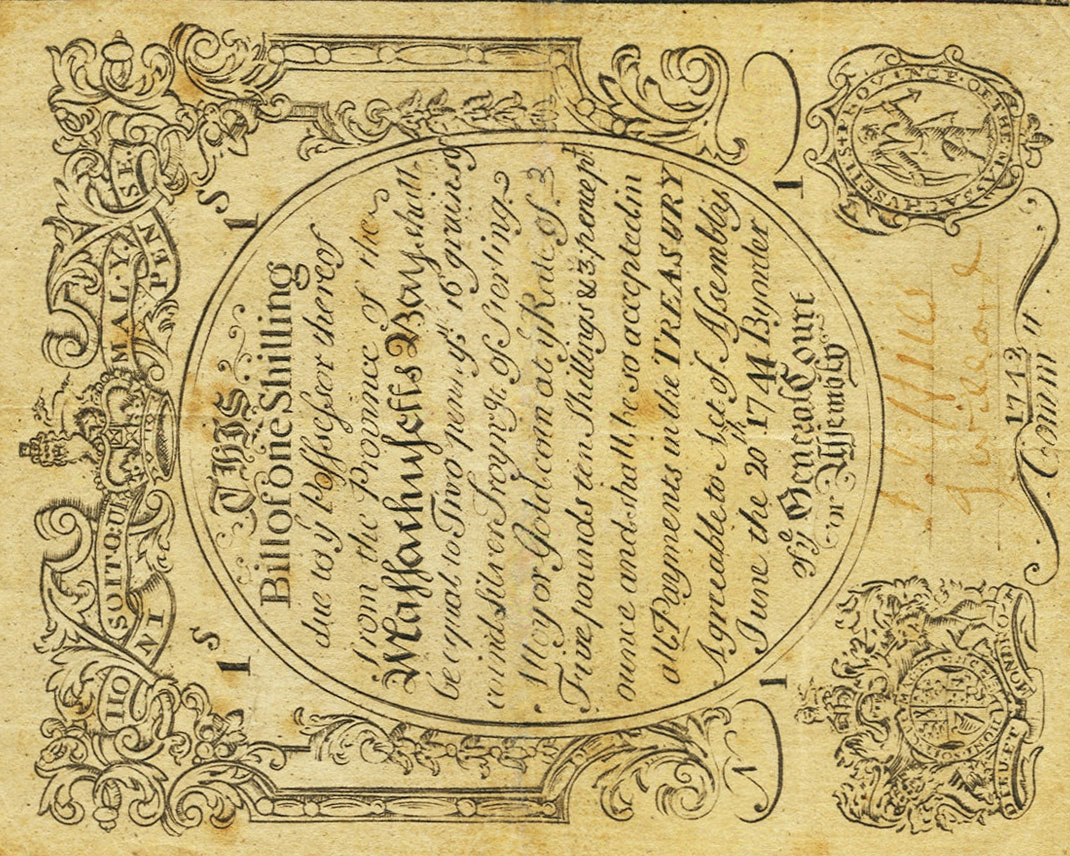 HONI SOIT QUI MAL Y PENSE
1 s 1 s
THIS
Bill of one Shilling
due to yͤ Possessor thereof
from the Province of the
Massachusetts Bay shall
be equal to Two penny wͭ 16 grains of
coind Silver Troy wͭ of Sterling
Alloy or Gold coin at yͤ Rate of 3
Five pounds ten Shillings & 3 pence pʳ
ounce and shall be so accepted in
all Payments in the TREASURY
Agreable to Act of Assembly
June the 20ᵗʰ 1744 By order
of yͤ Genᵉral Court
or Assembly
1 1
N
DIEU ET MON DROIT
PROVINCE OF THE MASSACHVSETTS
1743
Comm